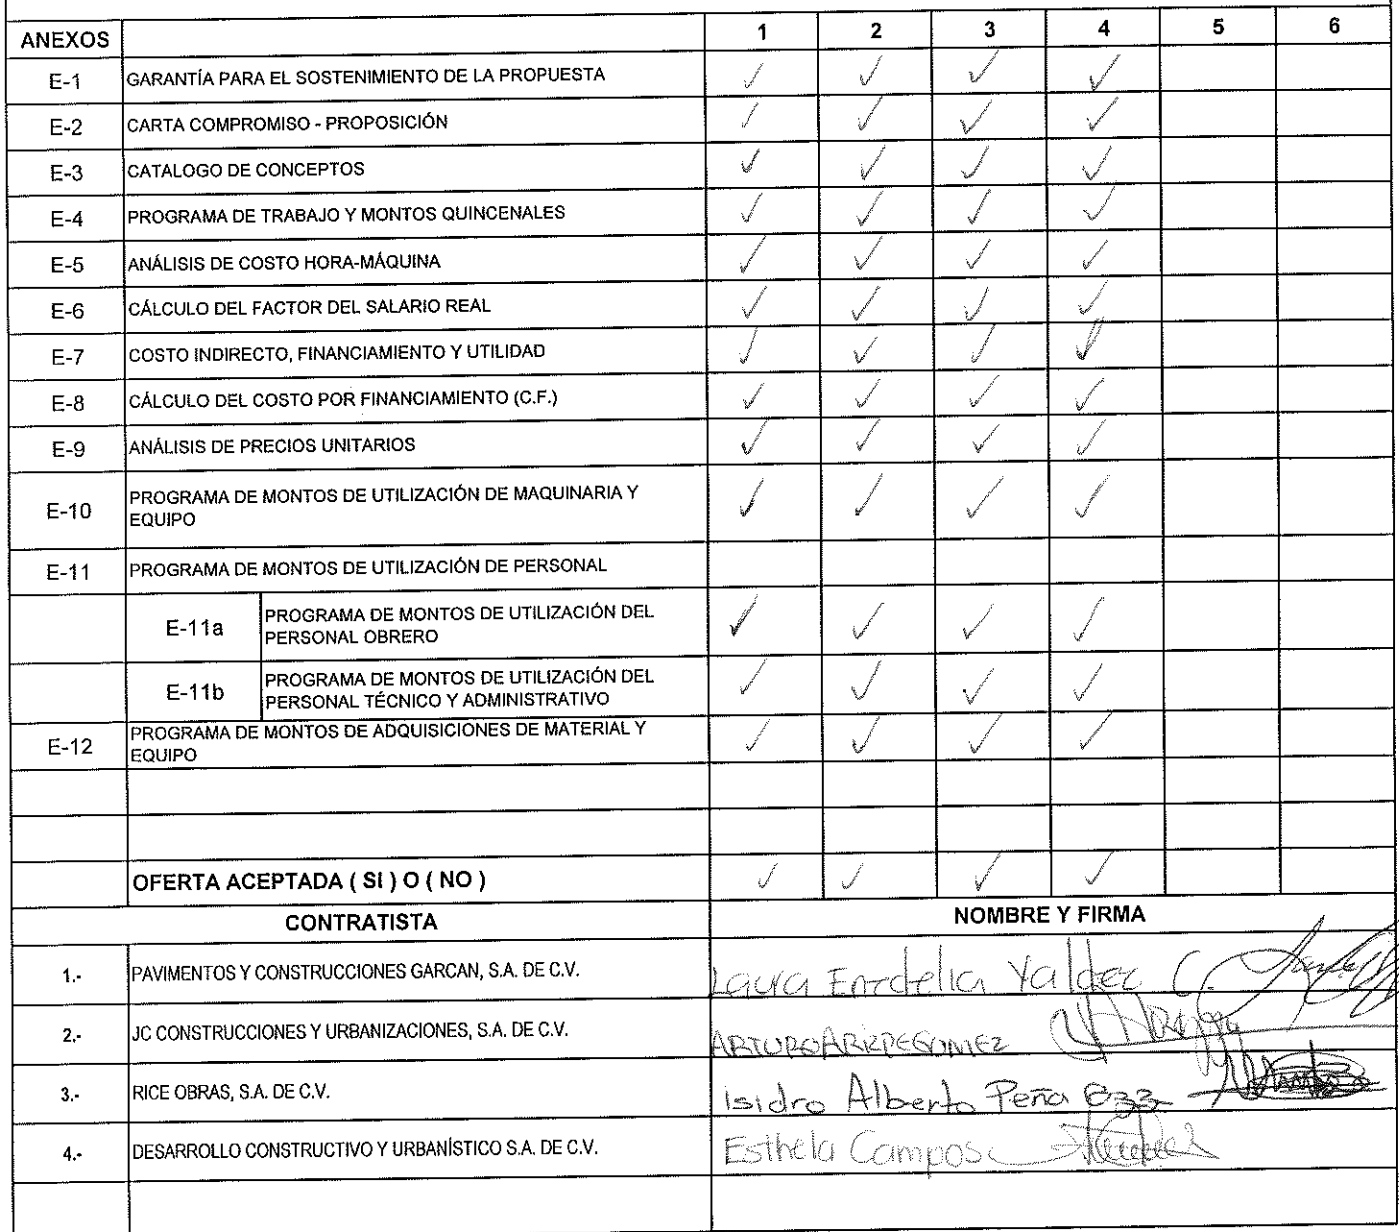 ANEXOS 1 2 3 4 5 6
E-1 GARANTÍA PARA EL SOSTENIMIENTO DE LA PROPUESTA ✓ ✓ ✓ ✓
E-2 CARTA COMPROMISO - PROPOSICIÓN ✓ ✓ ✓ ✓
E-3 CATALOGO DE CONCEPTOS ✓ ✓ ✓ ✓
E-4 PROGRAMA DE TRABAJO Y MONTOS QUINCENALES ✓ ✓ ✓ ✓
E-5 ANÁLISIS DE COSTO HORA-MÁQUINA ✓ ✓ ✓ ✓
E-6 CÁLCULO DEL FACTOR DEL SALARIO REAL ✓ ✓ ✓ ✓
E-7 COSTO INDIRECTO, FINANCIAMIENTO Y UTILIDAD ✓ ✓ ✓ ✓
E-8 CÁLCULO DEL COSTO POR FINANCIAMIENTO (C.F.) ✓ ✓ ✓ ✓
E-9 ANÁLISIS DE PRECIOS UNITARIOS ✓ ✓ ✓ ✓
E-10 PROGRAMA DE MONTOS DE UTILIZACIÓN DE MAQUINARIA Y
EQUIPO ✓ ✓ ✓ ✓
E-11 PROGRAMA DE MONTOS DE UTILIZACIÓN DE PERSONAL
E-11a PROGRAMA DE MONTOS DE UTILIZACIÓN DEL
PERSONAL OBRERO ✓ ✓ ✓ ✓
E-11b PROGRAMA DE MONTOS DE UTILIZACIÓN DEL
PERSONAL TÉCNICO Y ADMINISTRATIVO ✓ ✓ ✓ ✓
E-12 PROGRAMA DE MONTOS DE ADQUISICIONES DE MATERIAL Y
EQUIPO ✓ ✓ ✓ ✓
OFERTA ACEPTADA ( SI ) O ( NO ) ✓ ✓ ✓ ✓
CONTRATISTA NOMBRE Y FIRMA
1.- PAVIMENTOS Y CONSTRUCCIONES GARCAN, S.A. DE C.V. Laura C.
2.- JC CONSTRUCCIONES Y URBANIZACIONES, S.A. DE C.V. ARTURO GOMEZ
3.- RICE OBRAS, S.A. DE C.V. Isidro Alberto Peña
4.- DESARROLLO CONSTRUCTIVO Y URBANÍSTICO S.A. DE C.V. Esthela Campos